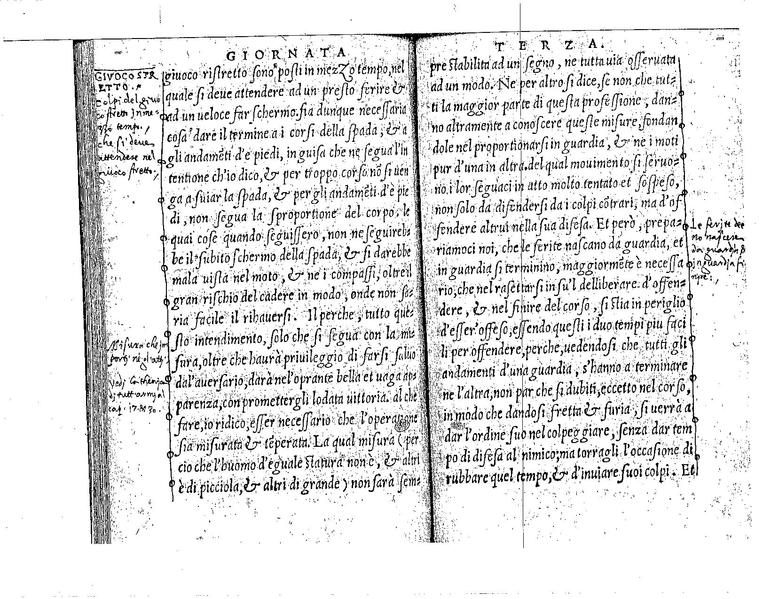 GIORNATA
giuoco ristretto sono posti in mezzo tempo, nel
quale si deue attendere ad un presto ferire &
ad un ueloce far schermo. fia dunque necessaria
cosa dare il termine a i corsi della spada, & a
gli andamẽti d'e piedi, in guisa che ne segua l'in
tentione ch'io dico, & per troppo corso nõ si uen
ga a suiar la spada, & per gli andamẽti d'e pie
di, non segua la sproportione del corpo, le
quai cose quando seguissero, non ne seguireb-
be il subito schermo della spada, & si darebbe
mala uista nel moto, & ne i compassi, oltre il
gran rischio del cadere in modo, onde non sa-
ria facile il rihauersi. Il perche, tutto que-
sto intendimento, solo che si segua con la mi-
sura, oltre che haurà priuileggio di farsi saluo
dal'auersario, darà nel'oprante bella et uaga ap
parenza, con promettergli lodata uittoria. al che
fare, io ridico, esser necessario che l'operazione
sia misurata & tẽperata. La qual misura (per
cio che l'huomo d'eguale statura non è, & altri
è di picciola, & altri di grande) non sarà sem-
GIVOCO STR
ETTO.
colpi del giuo
co stretto in me
zzo tempo,
che si deue
attendere nel
giuoco stretto,
Misura che im
porti
Vedi
cap.
TERZA.
pre stabilita ad un segno, ne tutta uia osseruata
ad un modo. Ne per altro si dice, se non che tut-
ti la maggior parte di questa professione, dan-
no altramente a conoscere queste misure, fondan
dole nel proportionarsi in guardia, & ne i moti
pur d'una in altra. del qual mouimento si seruo-
no i lor seguaci in atto molto tentato et sospeso,
non solo da difendersi da i colpi cõtrari, ma d'of
fendere altrui nella sua difesa. Et però, prepa-
riamoci noi, che le ferite nascano da guardia, et
in guardia si terminino, maggiormẽte è necessa
rio, che nel rasettarsi in su'l delliberare d'offen-
dere, & nel finire del corso, si stia in periglio
d'esser offeso, essendo questi i duo tempi piu faci
li per offendere, perche, uedendosi che tutti gli
andamenti d'una guardia, s'hanno a terminare
ne l'altra, non par che si dubiti, eccetto nel corso,
in modo che dandosi fretta & furia, si uerrà a
dar l'ordine suo nel colpeggiare, senza dar tem
po di difesa al nimico; ma torragli l'occasione di
rubbare quel tempo, & d'inuiare suoi colpi. Et
Le ferite de
no nascere
da guardia &
in guardia fi
nire;